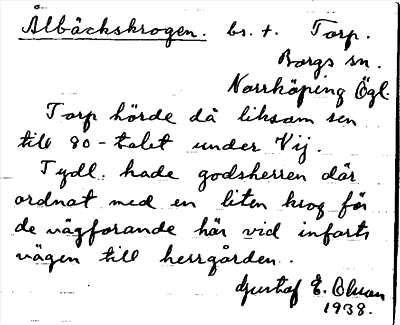 Ålbäckskrogen. br. t. Torp.
Borgs sn.
Norrköping Ögl.
Torp hörde då liksom sen
till 80-talet under Vij.
Tydl. hade godsherren där
ordnat med en liten krog för
de vägfarande här vid infarts
vägen till herrgården.
Gustaf E. Ohman
1938.